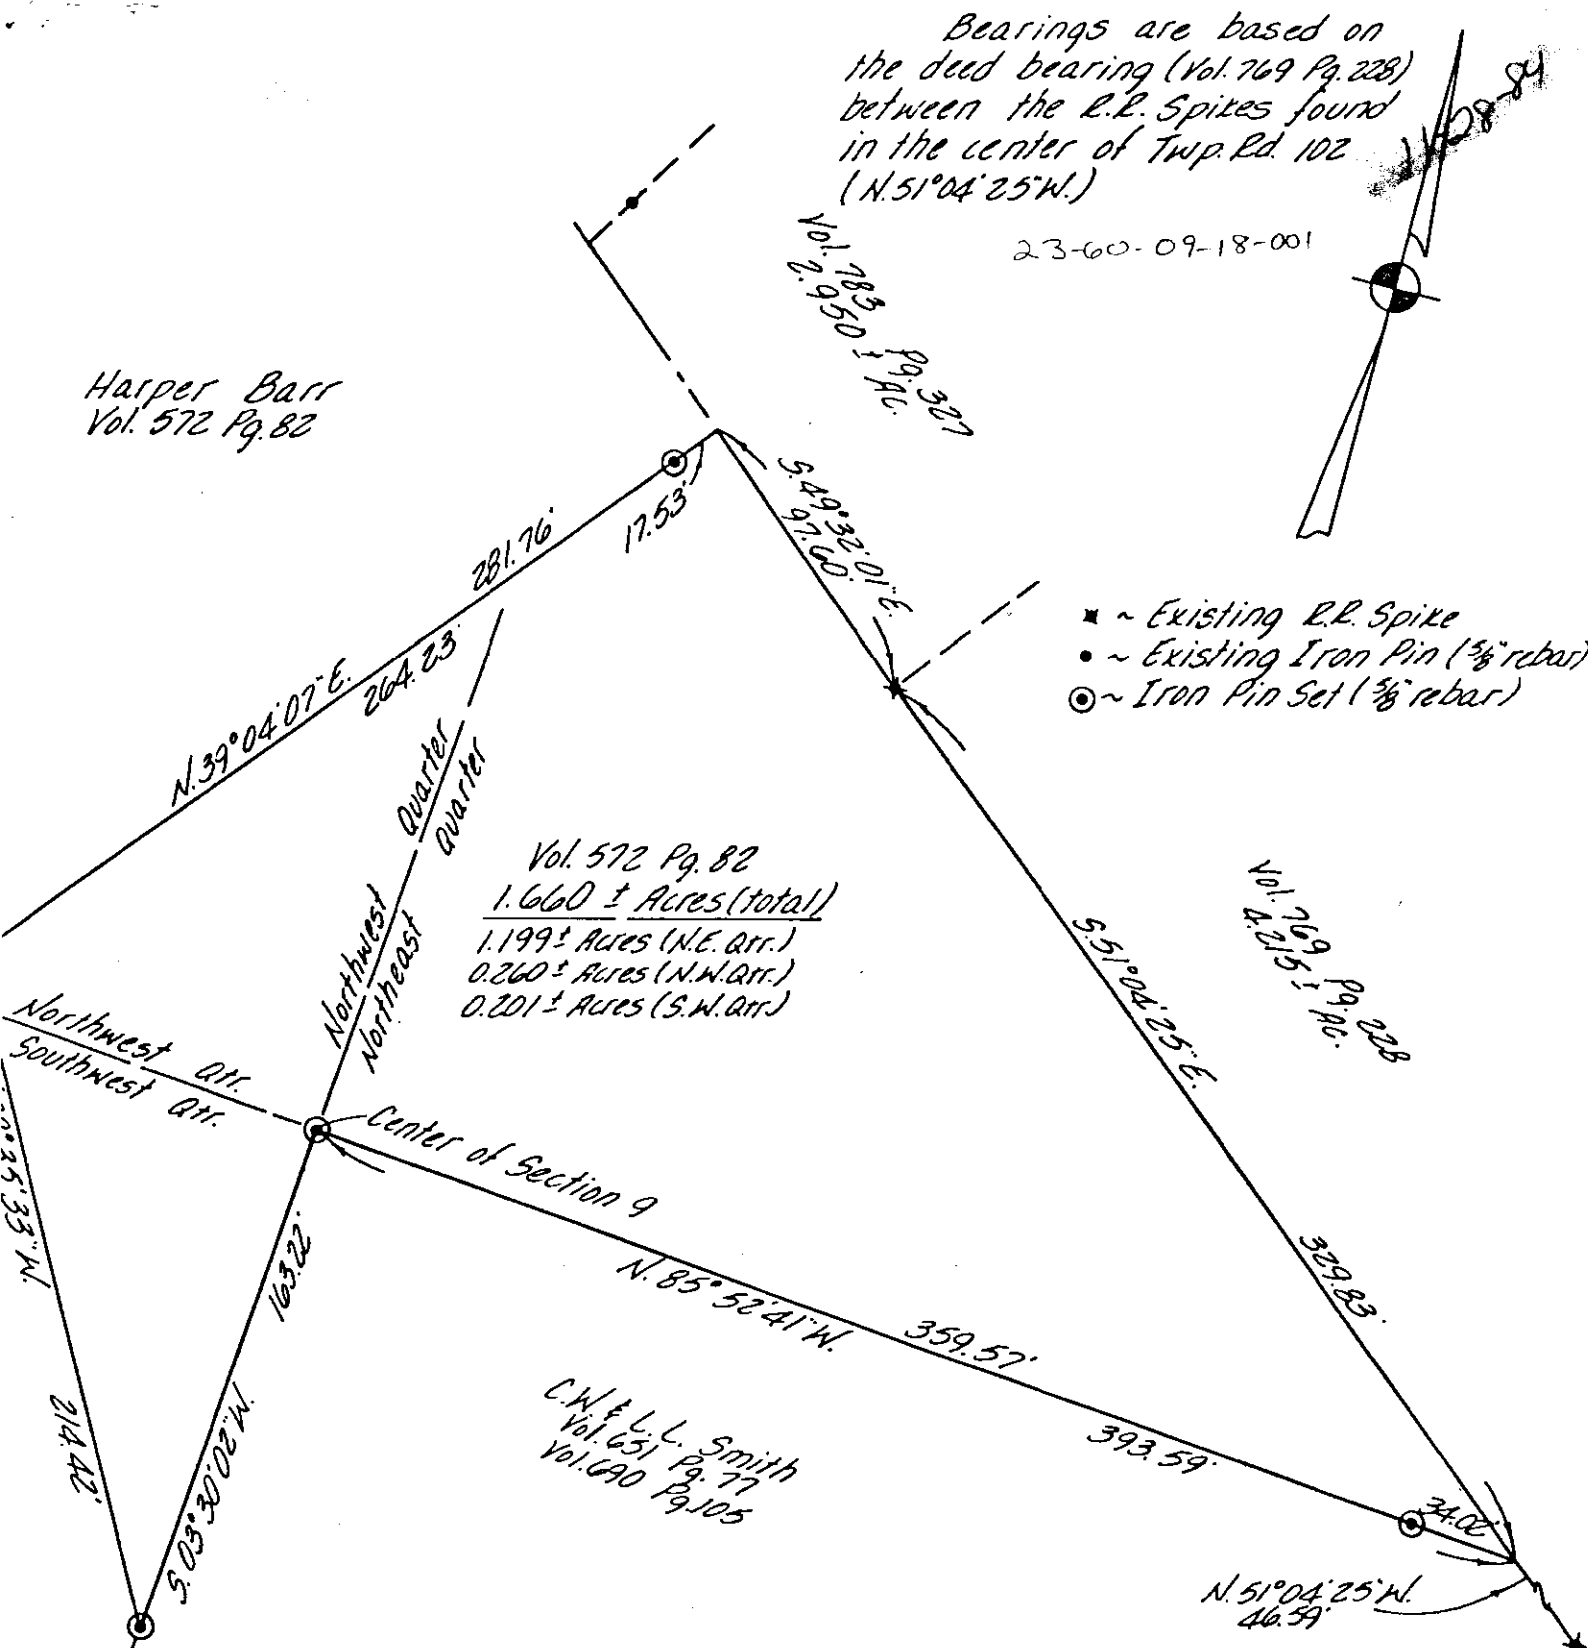 Bearings are based on
the deed bearing (Vol. 769 Pg. 228)
between the R.R. Spikes found
in the center of Twp. Rd. 102
(N.51°04'25"W.)
11-28-84
23-60-09-18-001
Vol. 783 Pg. 327
2.950 ± AC.
Harper Barr
Vol. 572 Pg. 82
S.49°32'01"E.
97.60'
17.53'
281.76'
N.39°04'07"E.
264.23'
★ ~ Existing R.R. Spike
• ~ Existing Iron Pin (5/8" rebar)
⊙ ~ Iron Pin Set (5/8" rebar)
Northwest Quarter
Northeast Quarter
Vol. 572 Pg. 82
1.660 ± Acres (total)
1.199 ± Acres (N.E. Qtr.)
0.260 ± Acres (N.W. Qtr.)
0.201 ± Acres (S.W. Qtr.)
Vol. 769 Pg. 228
4.215 ± AC.
S.51°04'25"E.
329.83'
Northwest Qtr.
Southwest Qtr.
Center of Section 9
25'33"W.
214.42'
163.22'
S.03°30'02"W.
N.85°52'41"W.
359.57'
393.59'
34.02'
C.W. & L.L. Smith
Vol. 651 Pg. 77
Vol. 690 Pg. 105
N.51°04'25"W.
46.59'